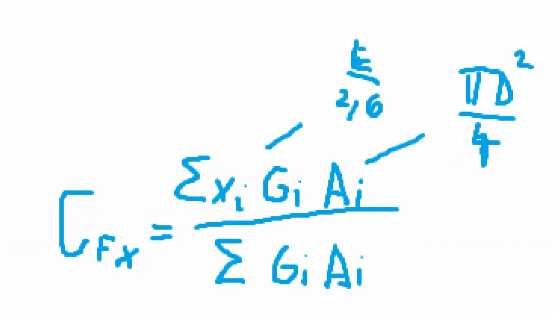 E/2,6
πD²/4
C_Fx = Σx_i G_i A_i / Σ G_i A_i